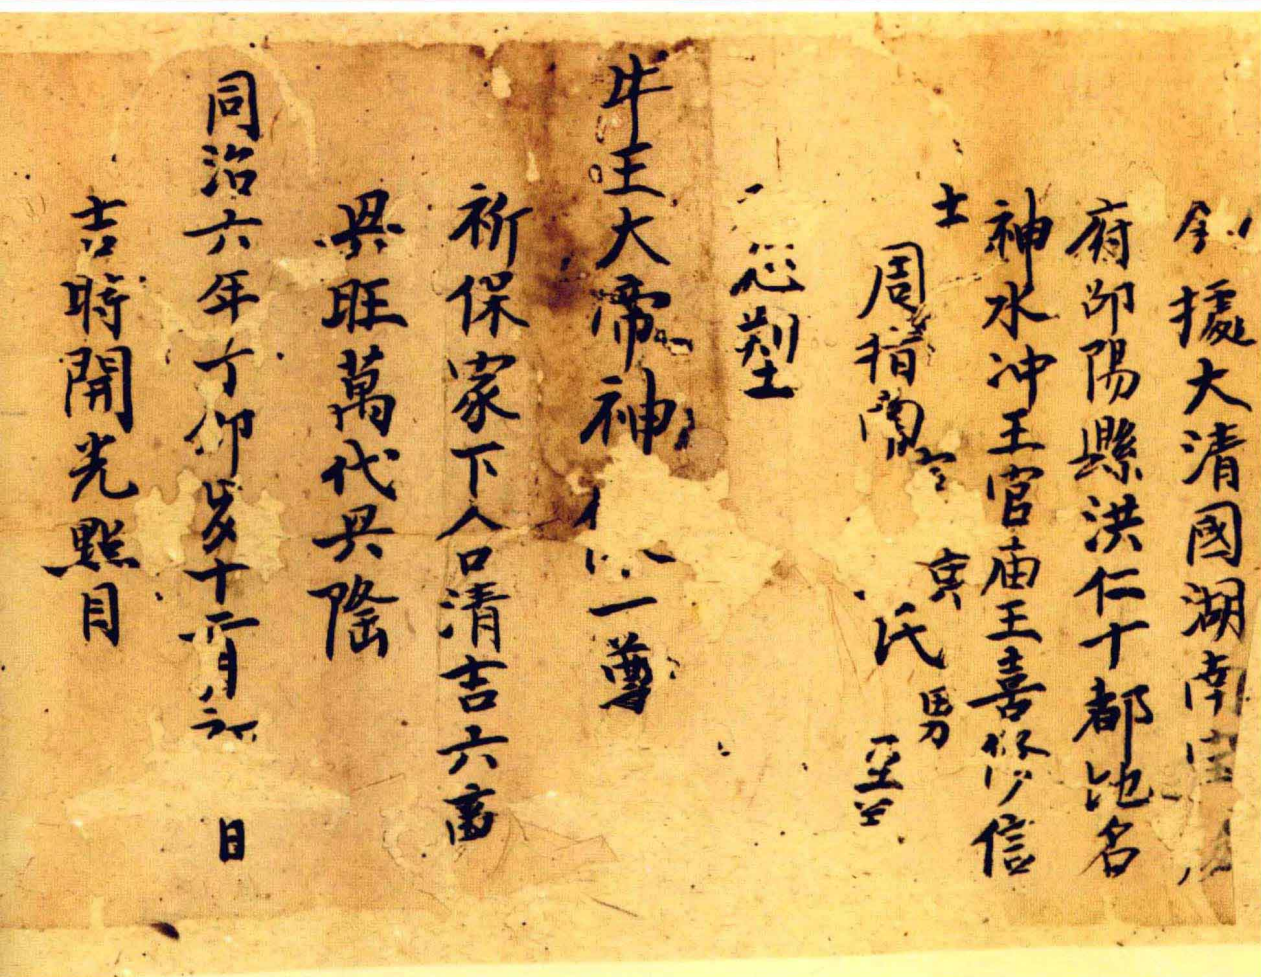 今據大清國湖南寶
府邵陽縣洪仁十都地名
神水冲王官庙王喜修信
士
周 氏男
塑
牛王大帝神 一尊
祈保家下人口清吉六畜
興旺萬代興隆
同治六年丁卯歲十二月初 日
吉時開光點目